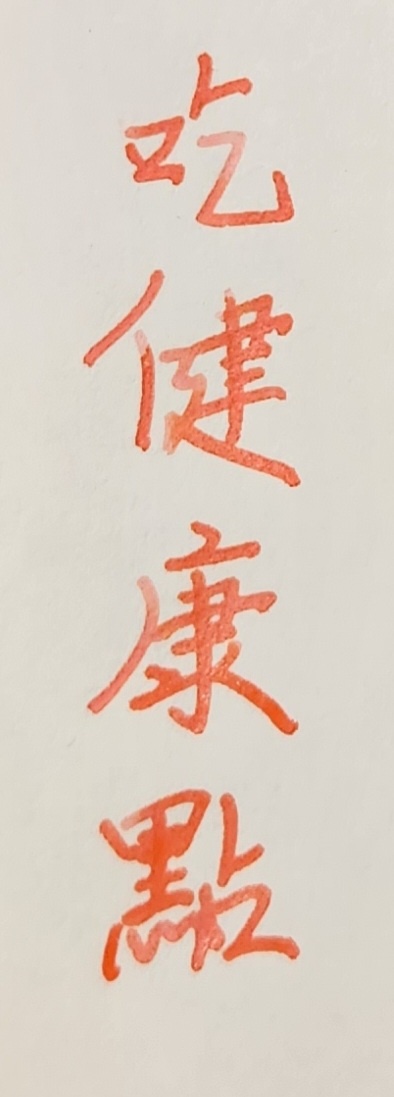 吃健康點